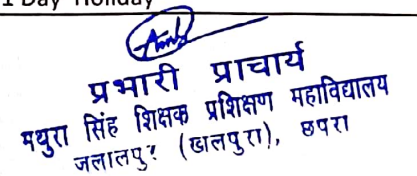 1 Day Holiday
प्रभारी प्राचार्य
मथुरा सिंह शिक्षक प्रशिक्षण महाविद्यालय
जलालपुर (खलपुरा), छपरा